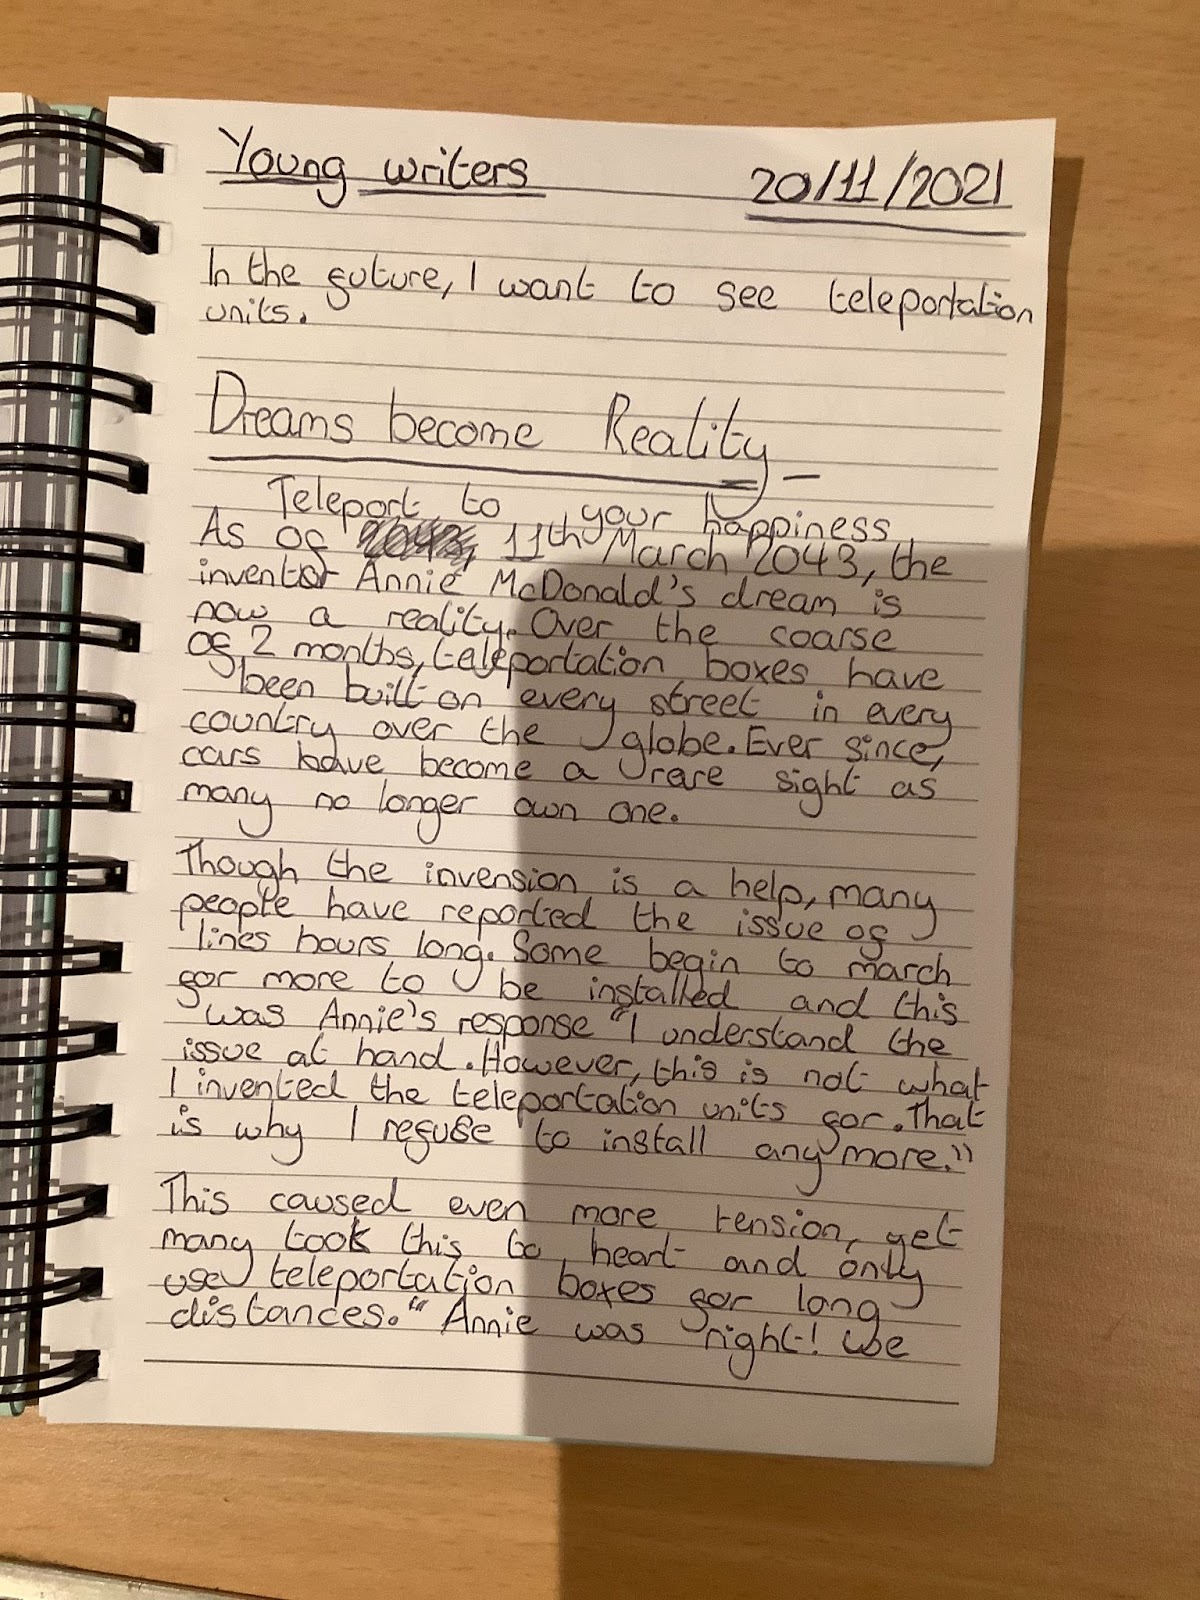 Young writers 20/11/2021
In the future, I want to see teleportation
units.
Dreams become Reality –
Teleport to your happiness
As of 11th March 2043, the
inventor Annie McDonald's dream is
now a reality. Over the coarse
of 2 months, teleportation boxes have
been built on every street in every
country over the globe. Ever since,
cars have become a rare sight as
many no longer own one.
Though the invension is a help, many
people have reported the issue of
lines hours long. Some begin to march
for more to be installed and this
was Annie's response "I understand the
issue at hand. However, this is not what
I invented the teleportation units for. That
is why I refuse to install any more."
This caused even more tension, yet
many took this to heart and only
use teleportation boxes for long
distances. "Annie was right! We